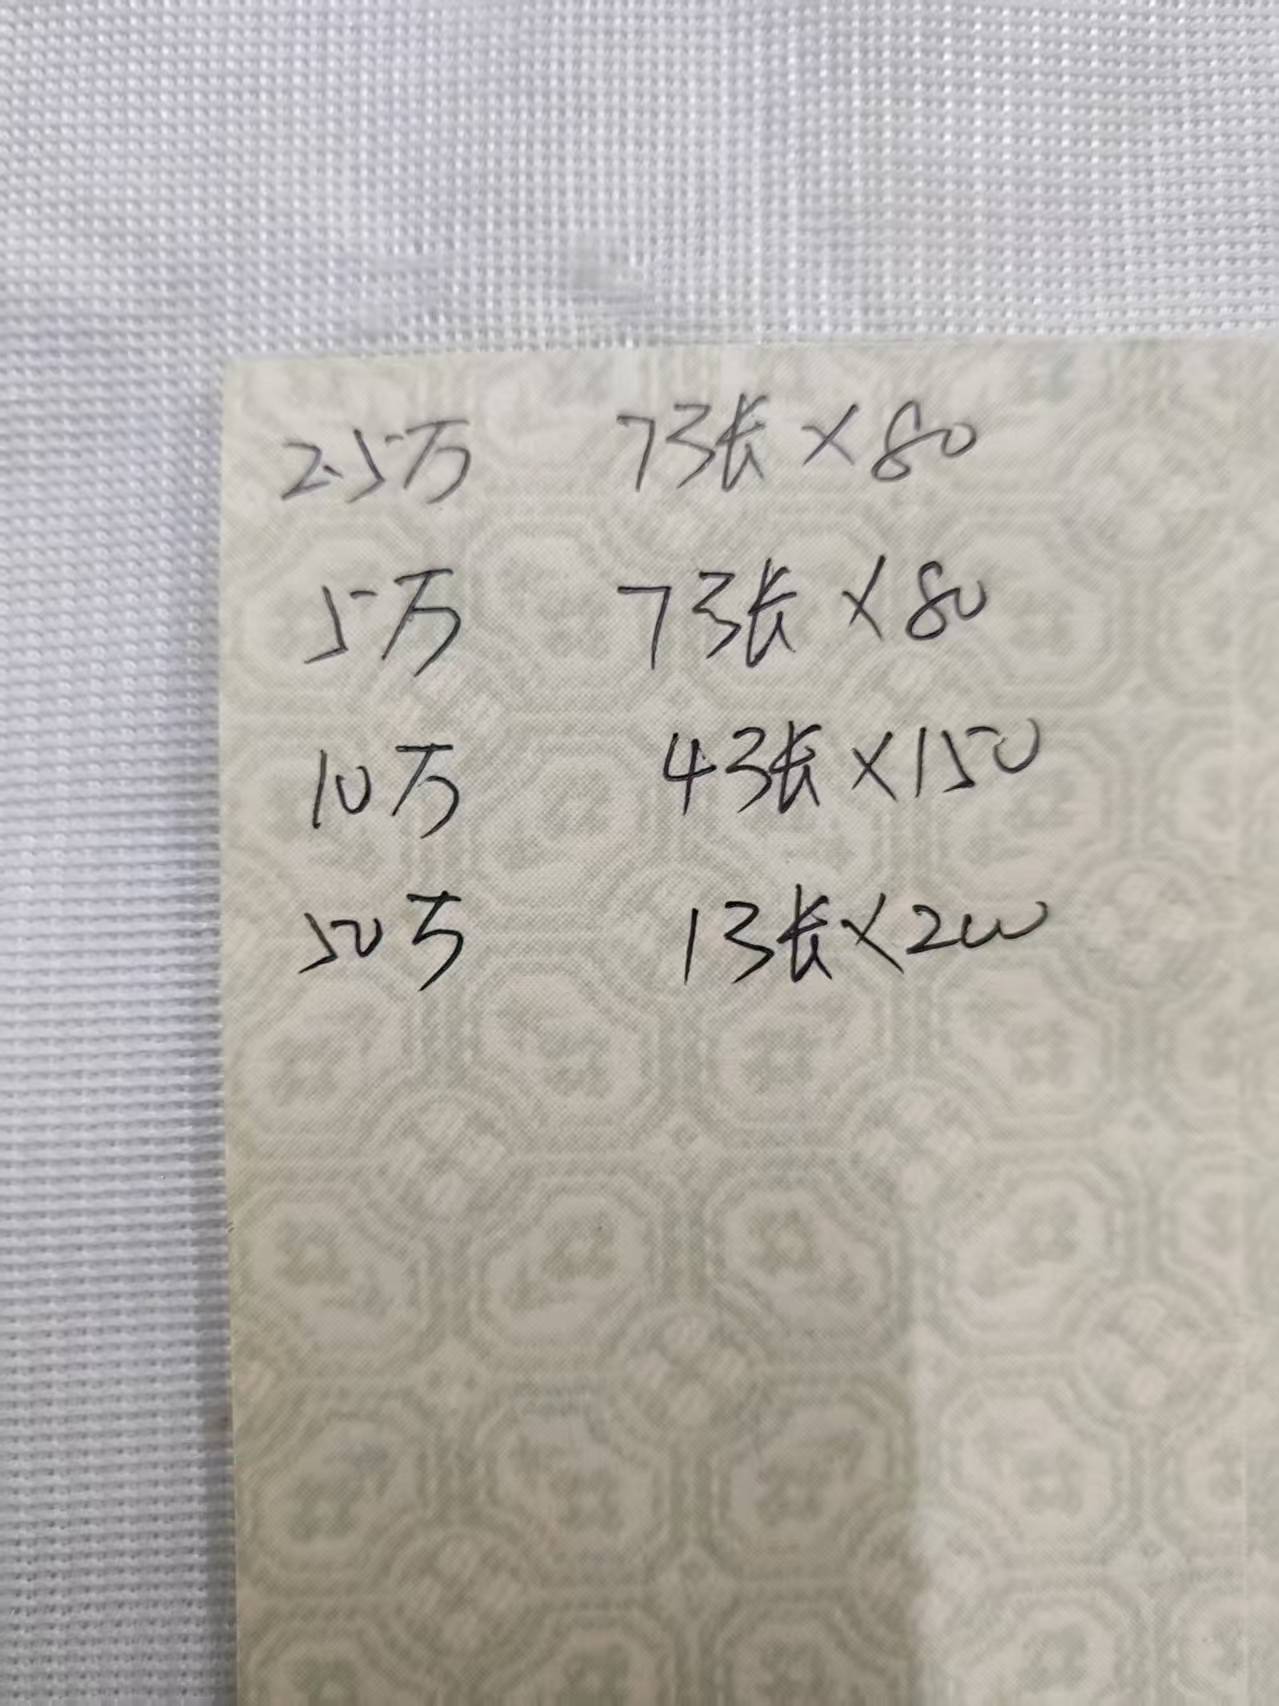 2.5万 7张×80
5万 7张×80
10万 4张×150
50万 1张×200